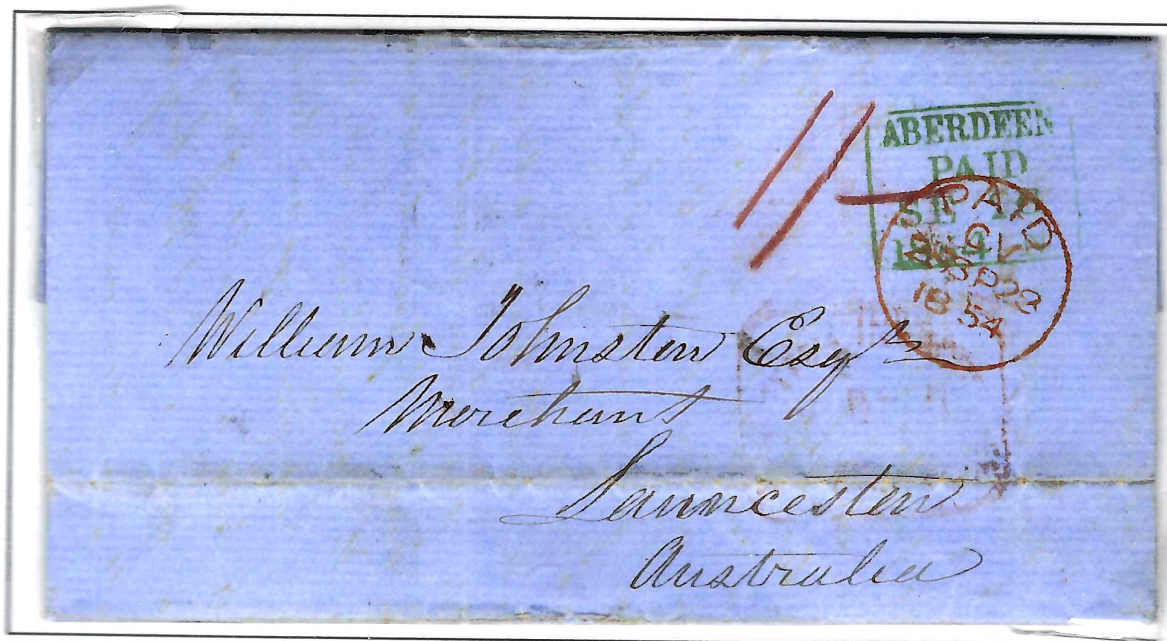 1/-
ABERDEEN
PAID
SE
1854
PAID
CV
SP 22
1854
William Johnston Esqr
Merchant
Launceston
Australia